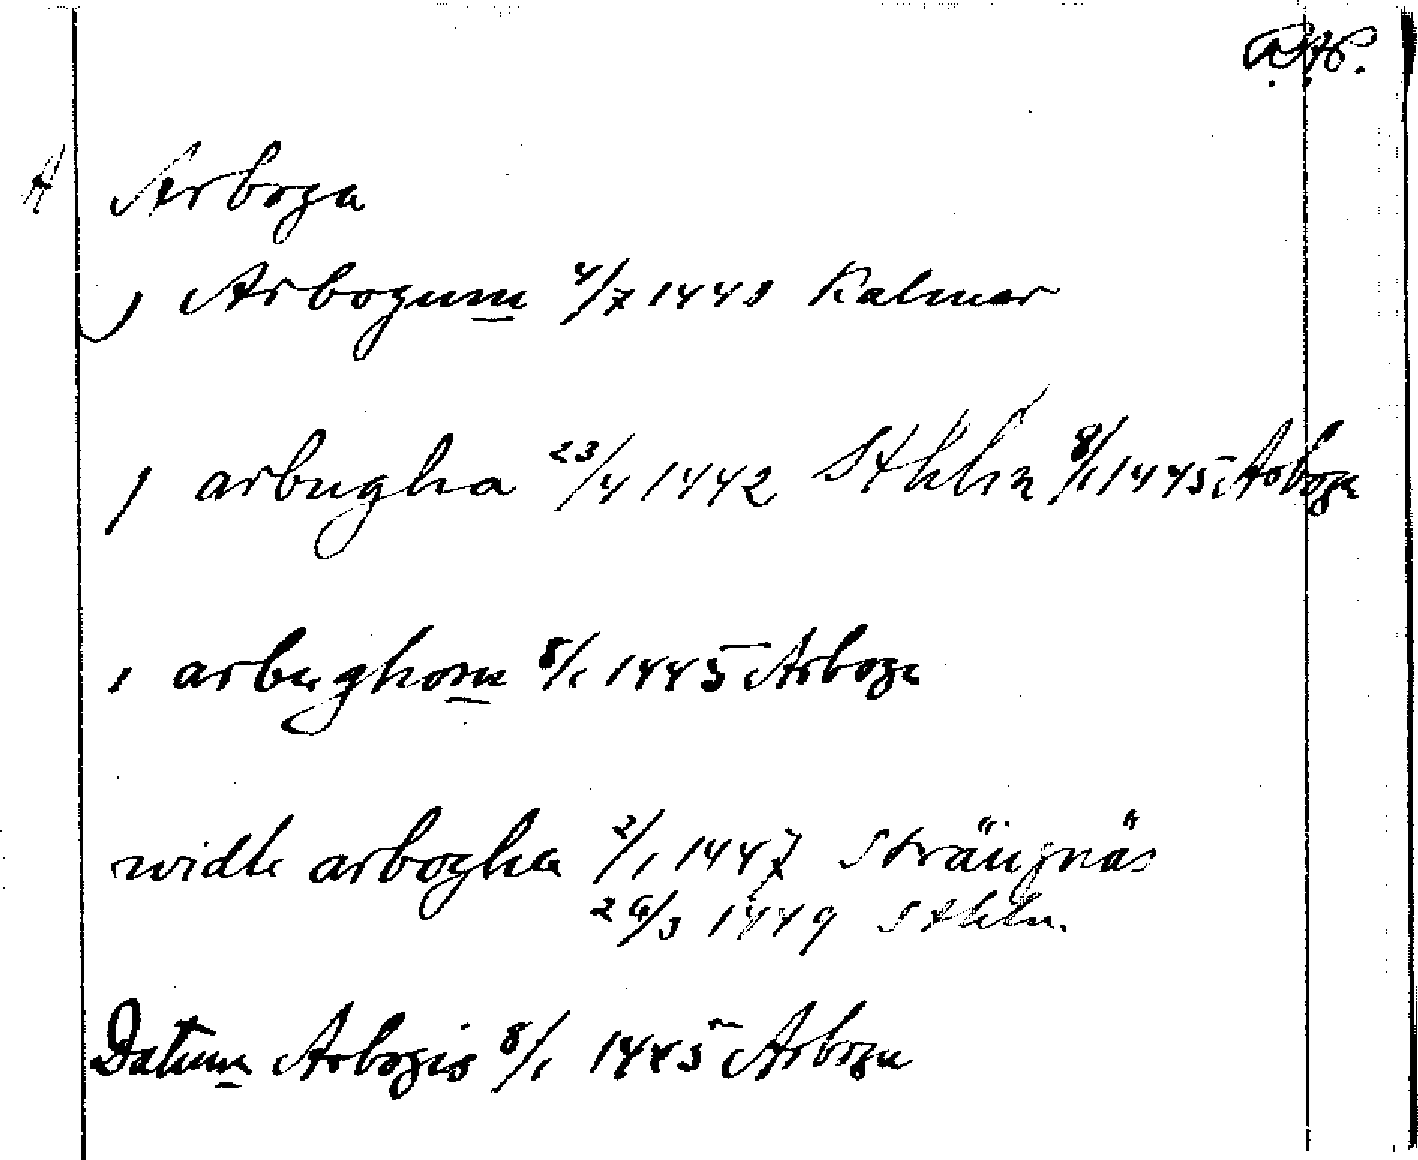 A Arboga
j Arbogum 4/7 1449 Kalmar
j arbugha 23/4 1442 Sthlm 8/1 1445 Arboga
i arbughom 8/1 1445 Arboga
widh arbogha 2/1 1447 Strängnäs
26/3 1449 Sthlm.
Datum Arbogis 8/1 1445 Arboga